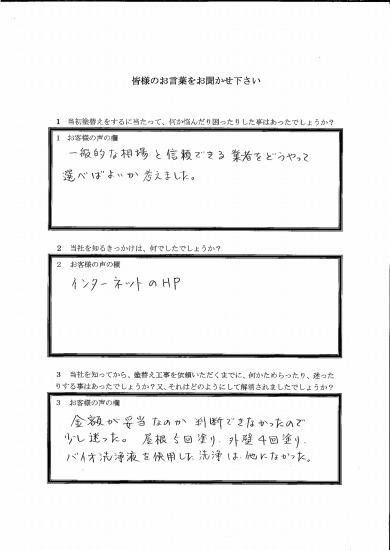 皆様のお言葉をお聞かせ下さい
1 当初塗替えをするに当たって、何か悩んだり困ったりした事はあったでしょうか?
1 お客様の声の欄
一般的な相場と信頼できる業者をどうやって
選べばよいか考えました。
2 当社を知るきっかけは、何でしたでしょうか?
2 お客様の声の欄
インターネットのHP
3 当社を知ってから、塗替え工事を依頼いただくまでに、何かためらったり、迷った
りする事はあったでしょうか?又、それはどのようにして解消されましたでしょうか?
3 お客様の声の欄
金額が妥当なのか判断できなかったので
少し迷った。屋根5回塗り、外壁4回塗り、
バイオ洗浄液を使用した洗浄は他になかった。